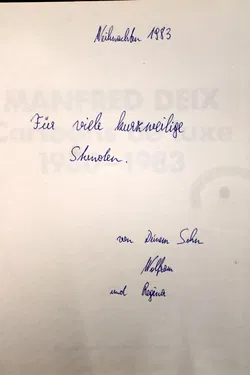 Weihnachten 1983
Für viele kurzweilige
Stunden.
von Deinem Sohn
Wolfram
und Regina
MANFRED DEIX
Cartoons de luxe
1983